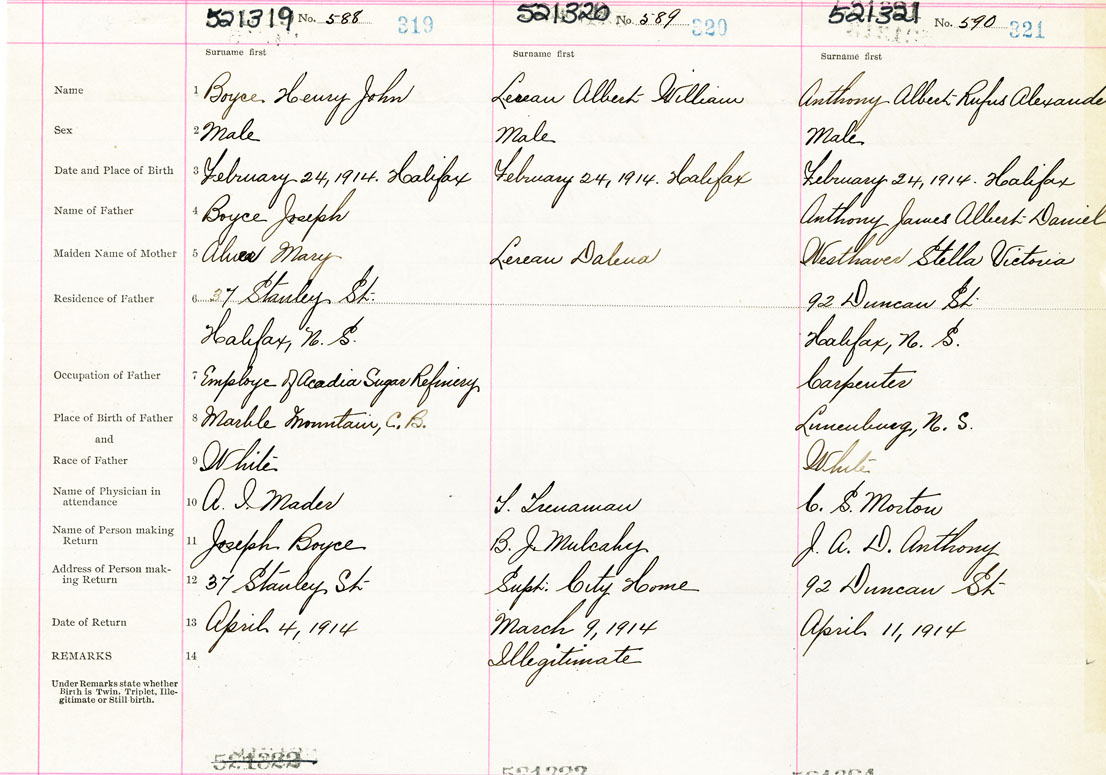 521319 No. 588 319 521320 No. 589 320 521321 No. 590 321
Surname first Surname first Surname first
Name 1 Boyce Henry John Lereau Albert William Anthony Albert Rufus Alexande
Sex 2 Male Male Male
Date and Place of Birth 3 February 24, 1914. Halifax February 24, 1914. Halifax February 24, 1914. Halifax
Name of Father 4 Boyce Joseph Anthony James Albert Daniel
Maiden Name of Mother 5 Mary Lereau Dalena Westhaver Stella Victoria
Residence of Father 6 37 Stanley St. 92 Duncan St.
Halifax, N. S. Halifax, N. S.
Occupation of Father 7 Employe of Acadia Sugar Refinery Carpenter
Place of Birth of Father 8 Marble Mountain, C. B. Lunenburg, N. S.
and
Race of Father 9 White White
Name of Physician in
attendance 10 A. I. Mader T. Trenaman C. S. Morton
Name of Person making
Return 11 Joseph Boyce B. J. Mulcahy J. A. D. Anthony
Address of Person mak-
ing Return 12 37 Stanley St Supt. City Home 92 Duncan St
Date of Return 13 April 4, 1914 March 9, 1914 April 11, 1914
REMARKS 14 Illegitimate
Under Remarks state whether
Birth is Twin, Triplet, Ille-
gitimate or Still-birth.
521322